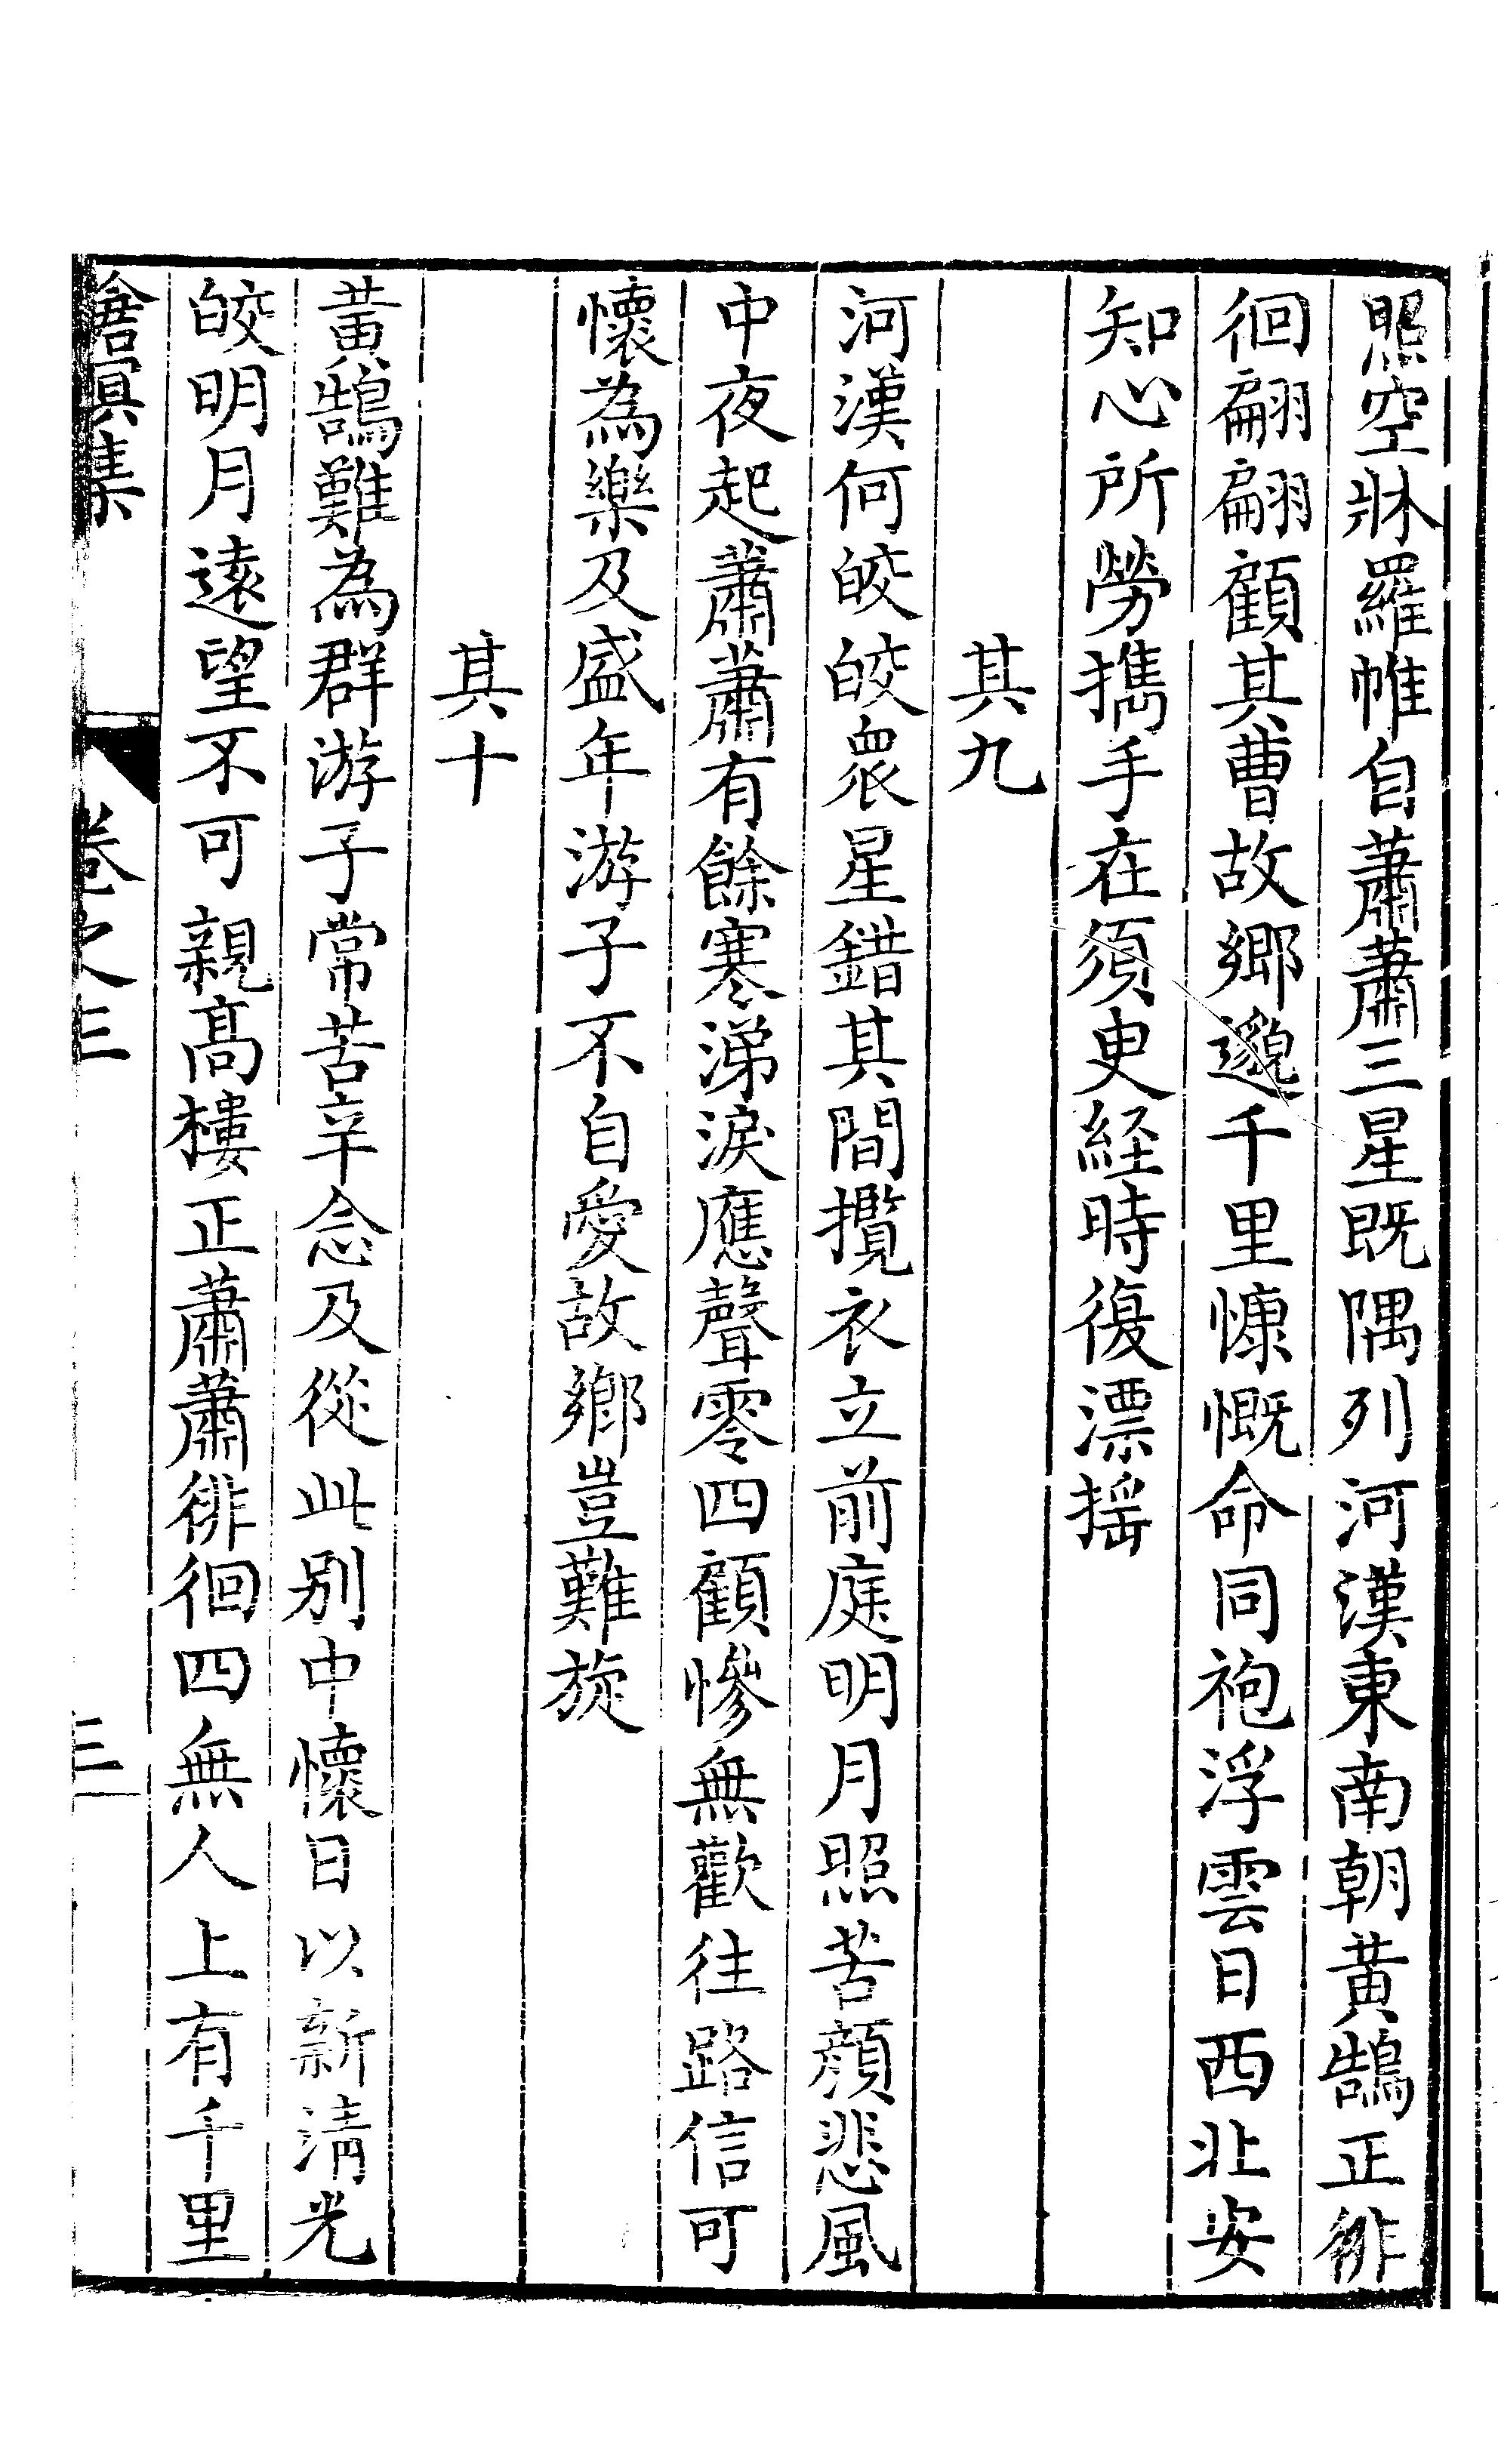 照空牀羅帷自蕭蕭三星既隅列河漢東南朝黃鵠正徘
徊翩翩顧其曹故鄉邈千里慷慨命同袍浮雲日西北安
知心所勞攜手在須臾経時復漂搖
其九
河漢何皎皎衆星錯其間攬衣立前庭明月照苦顏悲風
中夜起蕭蕭有餘寒涕淚應聲零四顧慘無歡往路信可
懷為樂及盛年游子不自愛故鄉豈難旋
其十
黃鵠難為群游子常苦辛念及從此別中懷日以新清光
皎明月遠望不可親高樓正蕭蕭徘徊四無人上有千里
集 卷之三 三